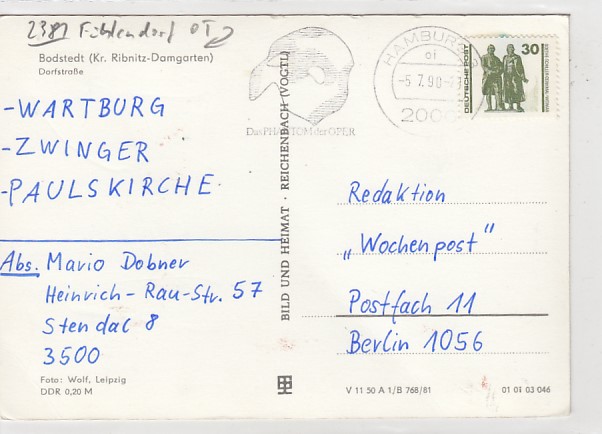 2381 Fuhlendorf OT
Bodstedt (Kr. Ribnitz-Damgarten)
Dorfstraße
-WARTBURG
-ZWINGER
-PAULSKIRCHE
Abs. Mario Dobner
Heinrich-Rau-Str. 57
Stendal 8
3500
Foto: Wolf, Leipzig
DDR 0,20 M
BILD UND HEIMAT · REICHENBACH (VOGTL)
Das PHANTOM der OPER
HAMBURG
-5.7.90-
2000
30
DEUTSCHE POST
Redaktion
„Wochenpost"
Postfach 11
Berlin 1056
V 11 50 A 1/B 768/81
01 01 03 046